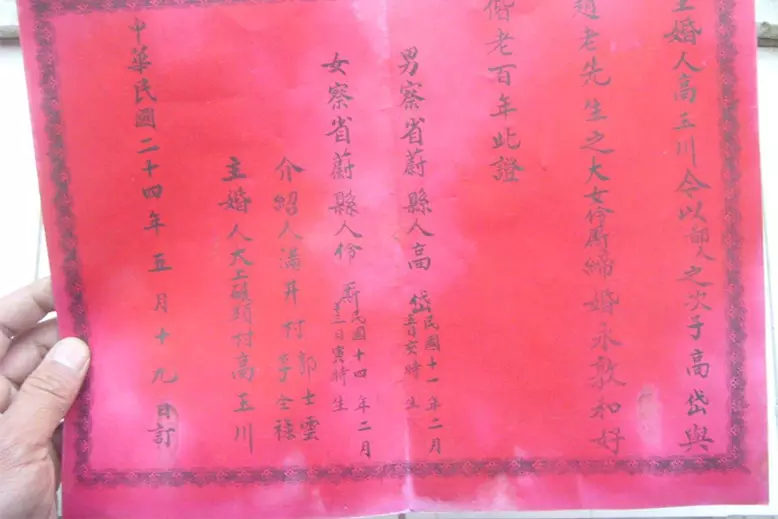 主婚人高玉川今以鄙人之次子高岱與
趙老先生之大女伶 締婚永敦和好
偕老百年此證
男察省蔚縣人高岱民國十一年二月
 日亥時生
女察省蔚縣人伶 民國十四年二月
 日寅時生
介紹人滿井村郭士雲
主婚人大 頭村高玉川
中華民國二十四年五月十九日訂